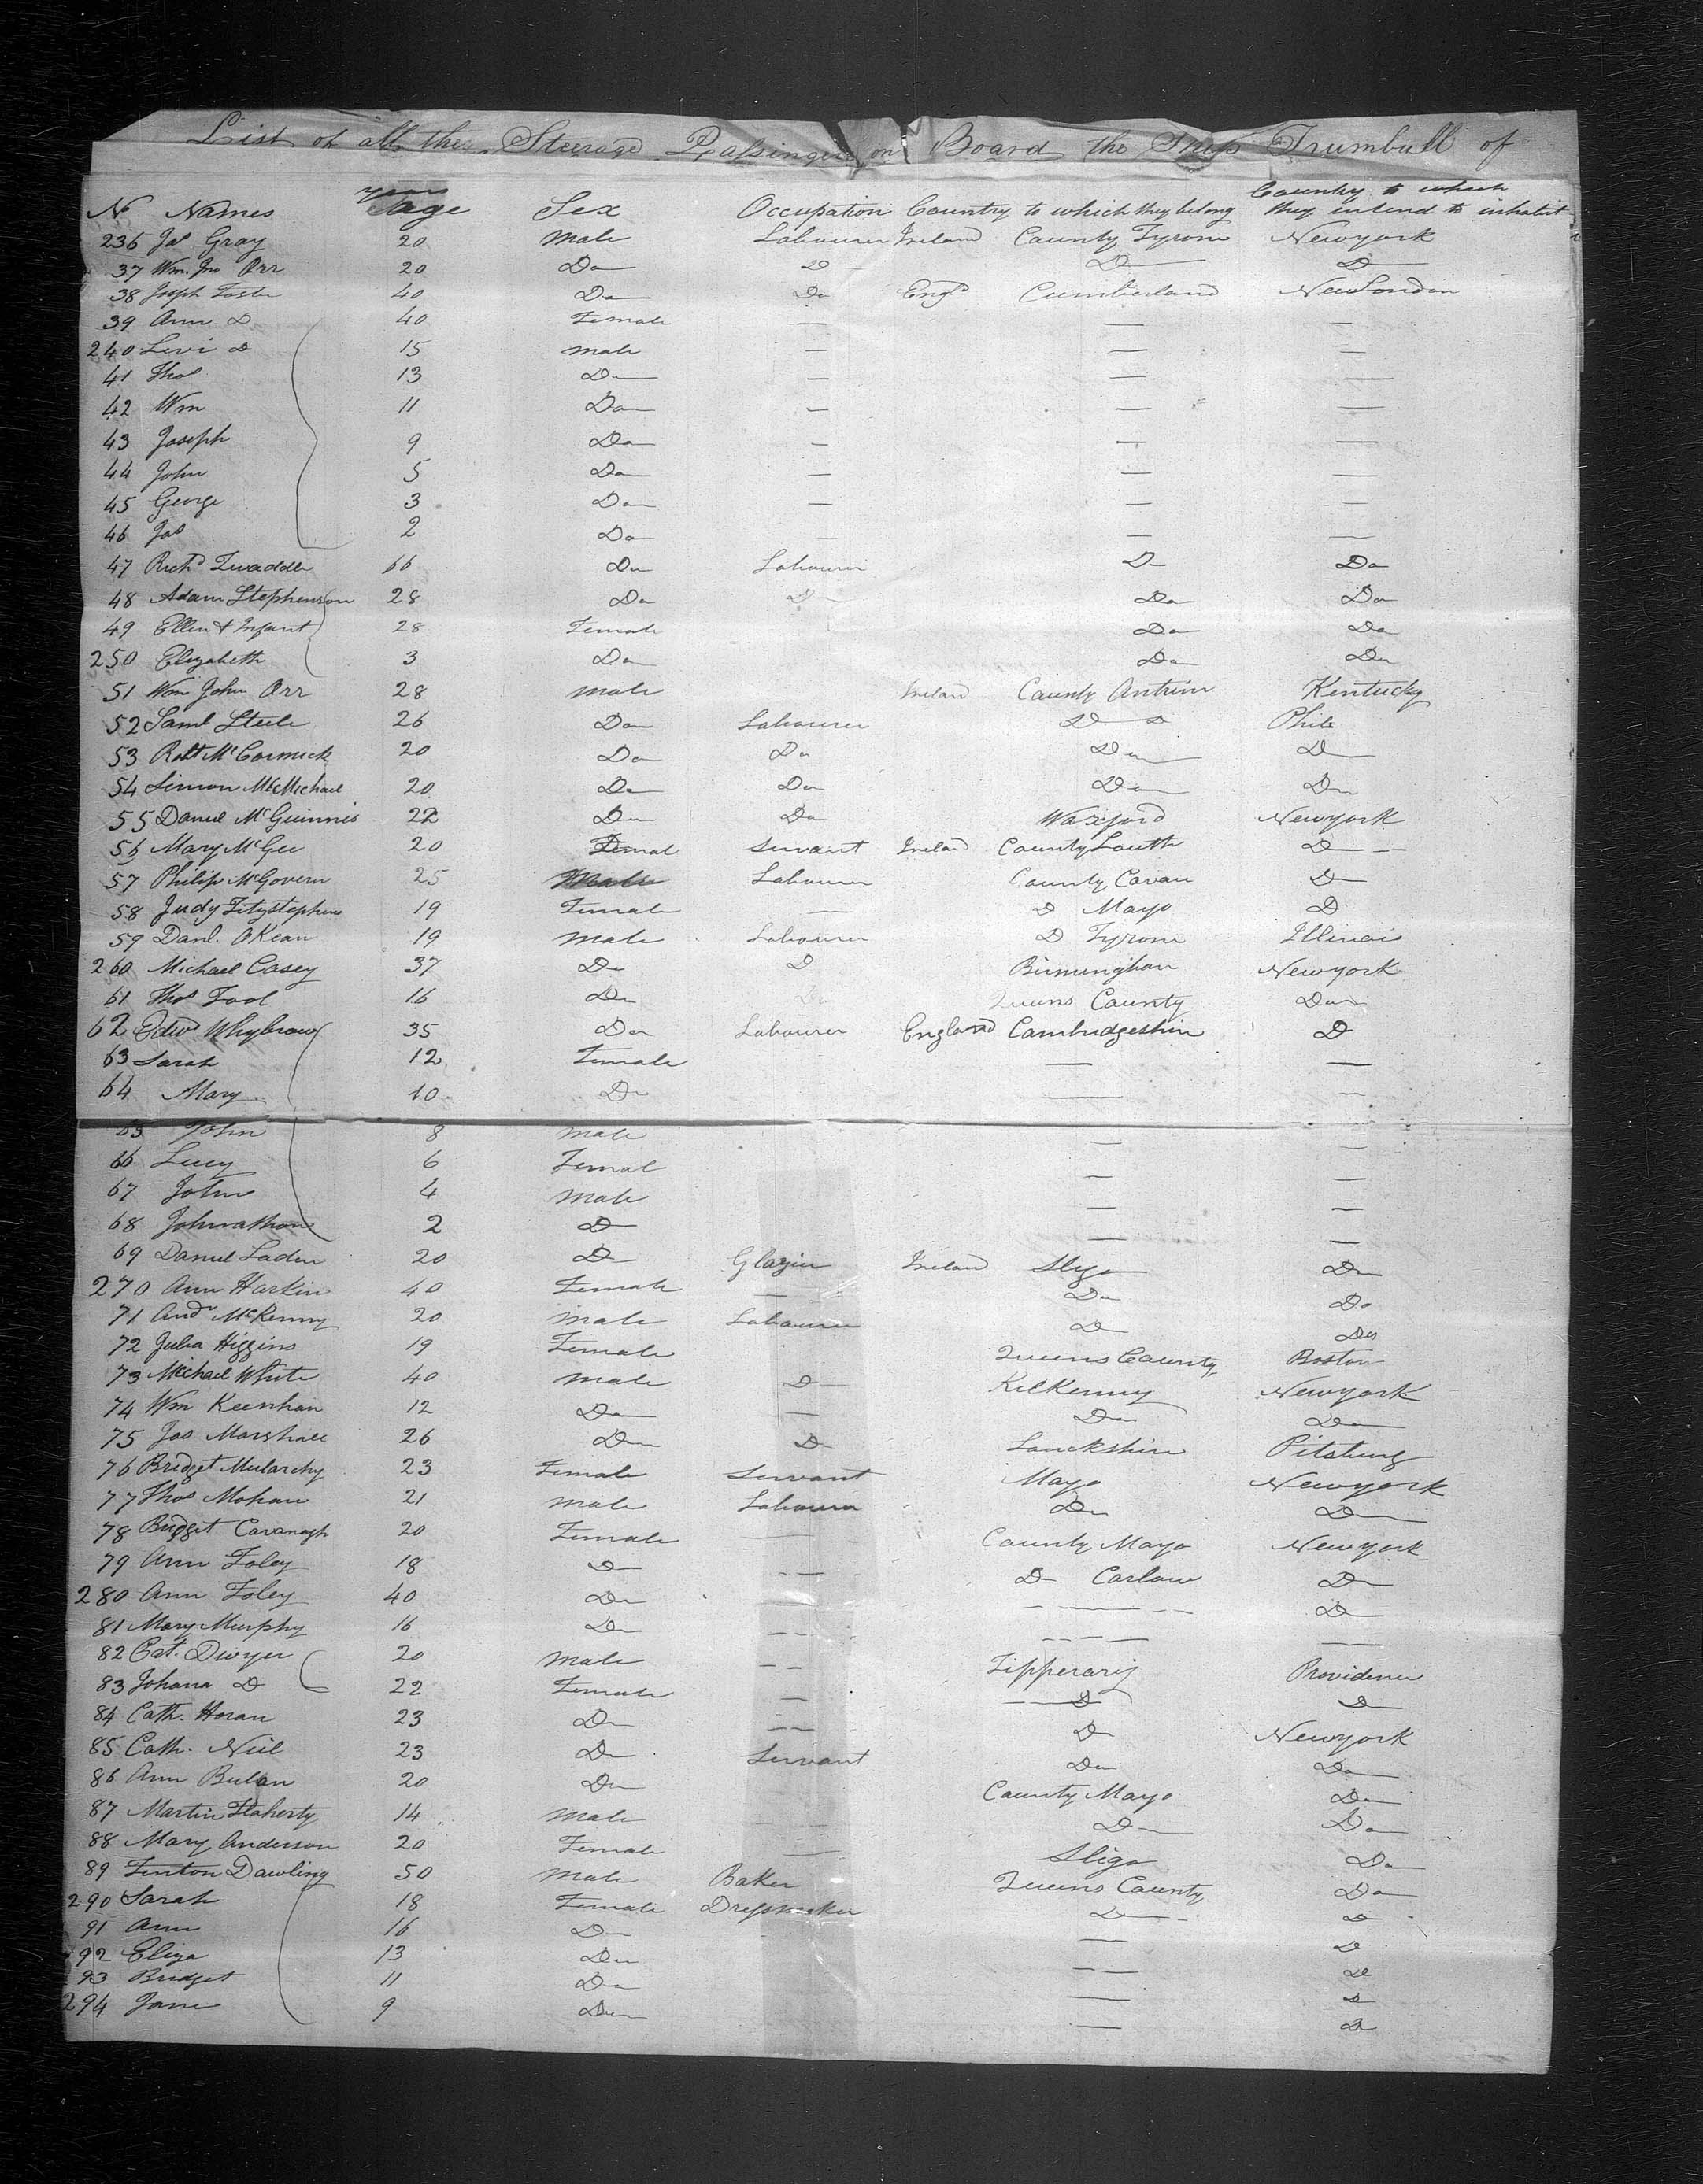 List of all the Steerage Passingers on Board the Ship Trumbull of
N Names years age Sex Occupation Country to which they belong Country to which they intend to inhabit
236 Jas Gray 20 Male Labourer Ireland County Tyrone Newyork
37 Wm. Jno Orr 20 Do D D D
38 Joseph Foster 40 Do Do Engd Cumberland New London
39 Ann D 40 Female — — —
240 Levi D 15 male — — —
41 Thos 13 Do — — —
42 Wm 11 Do — — —
43 Joseph 9 Do — — —
44 John 5 Do — — —
45 George 3 Do — — —
46 Jas 2 Do — — —
47 Richd Twaddle 66 Do Labourer D Do
48 Adam Stephenson 28 Do Do Do Do
49 Ellen & Infant 28 Female Do Do
250 Elizabeth 3 Do Do Do
51 Wm John Orr 28 male Ireland County Antrim Kentucky
52 Saml Steele 26 Do Labourer D D Phile
53 Robt McCormick 20 Do Do Do D
54 Simon McMichael 20 Do Do Do Do
55 Daniel McGuinnis 22 Do Do Waxford Newyork
56 Mary McGee 20 Femal Servant Ireland County Louth D
57 Philip McGovern 25 Male Labourer County Cavan D
58 Judy Fitzstephens 19 Female — D Mayo D
59 Danl. OKean 19 male Labourer D Tyrone Illinois
260 Michael Casey 37 Do D Birmingham Newyork
61 Thos Tool 16 Do Do Queens County Do
62 Edwd Whybrow 35 Do Labourer England Cambridgeshire D
63 Sarah 12 Female — —
64 Mary 10 Do — —
65 John 8 male — —
66 Lucy 6 Femal — —
67 John 4 male — —
68 Johnathan 2 D — —
69 Daniel Laden 20 D Glazier Ireland Sligo Do
270 Ann Harkin 40 Female — Do Do
71 Andw McKenny 20 male Labourer D Do
72 Julia Higgins 19 Female Queens County Boston
73 Michael White 40 male D KilKenny Newyork
74 Wm Keenhan 12 Do — Do Do
75 Jas Marshall 26 Do D Lanckshire Pitsburg
76 Bridget Mularchy 23 Female Servant Mayo Newyork
77 Thos Mohan 21 male Labourer Do Do
78 Bridget Cavanagh 20 Female — County Mayo Newyork
79 Ann Foley 18 D — D Carlow D
280 Ann Foley 40 Do — D
81 Mary Murphy 16 Do — — —
82 Pat. Dwyer 20 male — Tipperary Providence
83 Johana D 22 Female — D D
84 Cath. Horan 23 Do — D Newyork
85 Cath. Neil 23 Do Servant Do Do
86 Ann 20 Do County Mayo Do
87 Martin Flaherty 14 male — Do Do
88 Mary Anderson 20 Female — Sligo Do
89 Finton Dawling 50 male Baker Queens County Do
290 Sarah 18 Female Dressmaker D D
91 Ann 16 Do — D
92 Eliza 13 Do — D
93 Bridget 11 Do — D
294 Jane 9 Do — D